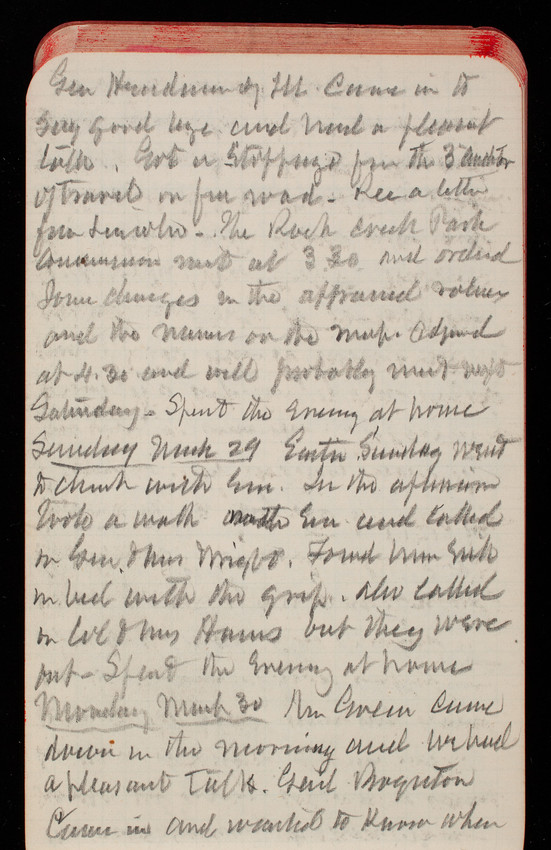 Gen Hardman of Ill. Came in to
say good bye and had a pleasant
talk. Got a stoppage from the 3 Auditor
of travel on free road - Rec a letter
from Lincoln - The Rock Creek Park
Commission met at 3 30 and ordered
some changes in the appraised values
and the names on the map. Adjond
at 4.30 and will probably meet next
Saturday - Spent the evening at home
Sunday March 29 Easter Sunday went
to church with Em. In the afternoon
took a walk with Em and called
on Gen & Mrs Wright. Found him sick
in bed with the grip. Also called
on Col & Mrs but they were
out - Spend the Evening at home
Monday March 30 Mr Green came
down in the morning and we had
a pleasant talk. Genl Boynton
Came in and wanted to know when